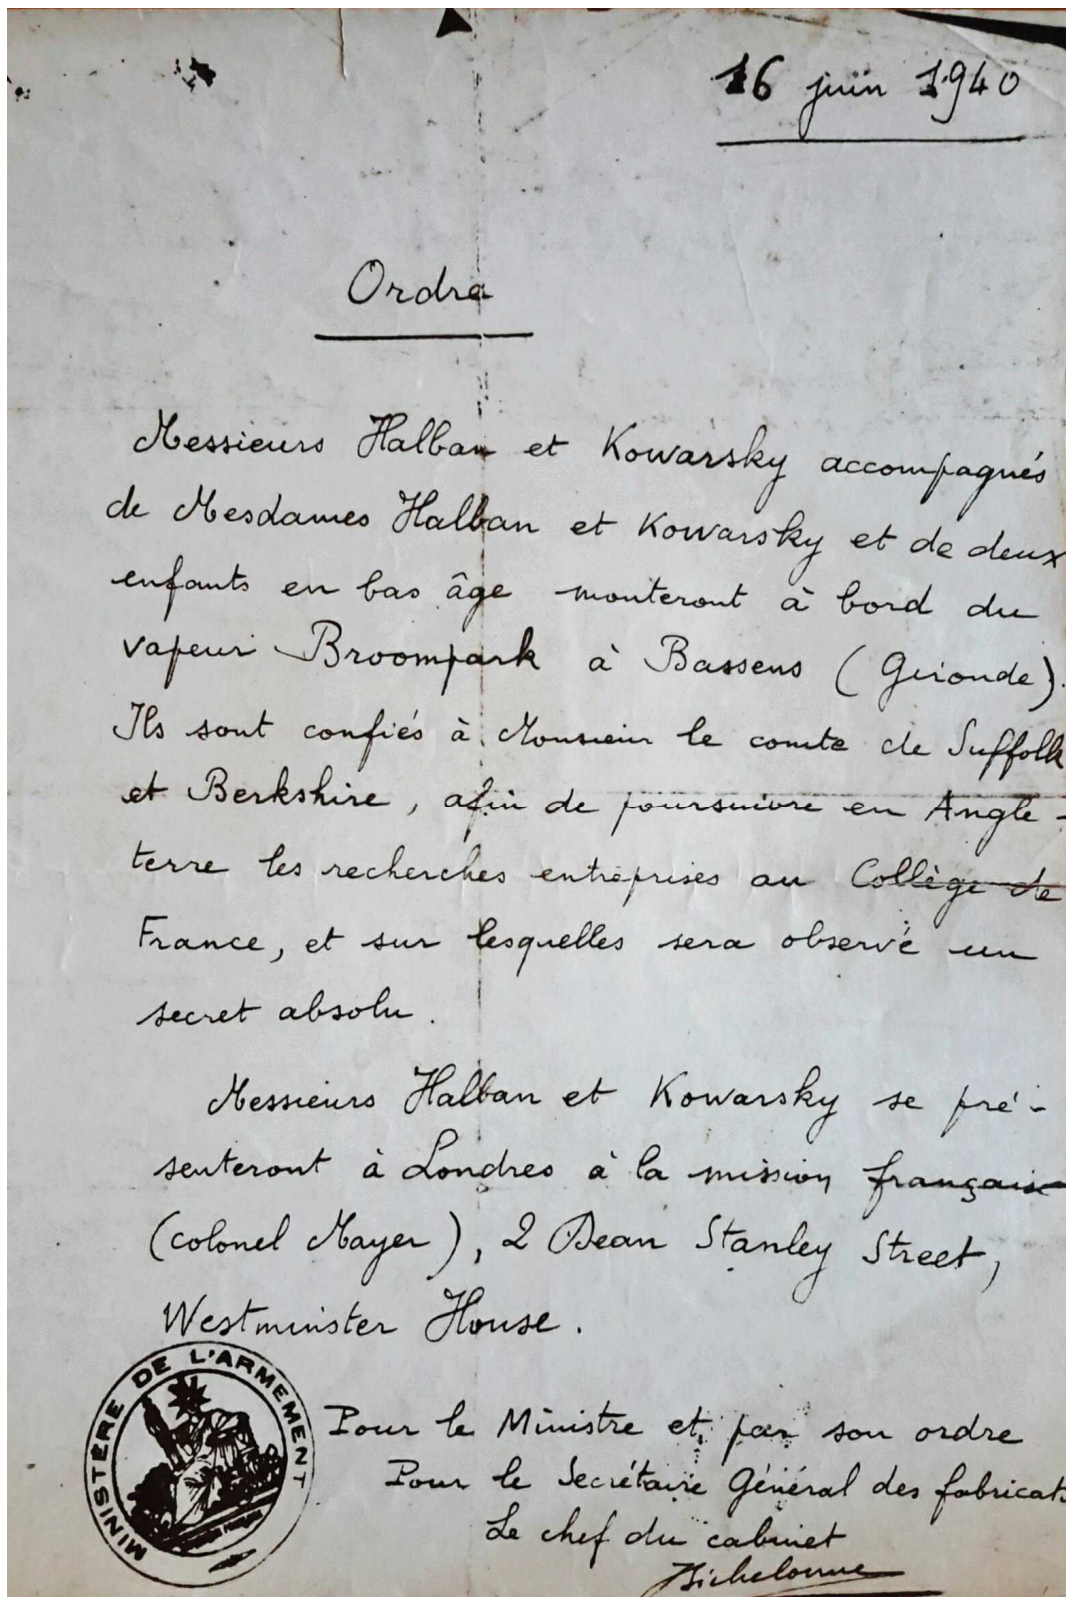 16 juin 1940
Ordre
Messieurs Halban et Kowarsky accompagnés
de Mesdames Halban et Kowarsky et de deux
enfants en bas âge monteront à bord du
vapeur Broompark à Bassens (Gironde).
Ils sont confiés à Monsieur le comte de Suffolk
et Berkshire, afin de poursuivre en Angle-
terre les recherches entreprises au Collège de
France, et sur lesquelles sera observé un
secret absolu.
Messieurs Halban et Kowarsky se pré-
senteront à Londres à la mission française
(colonel Mayer), 2 Dean Stanley Street,
Westminster House.
MINISTÈRE DE L'ARMEMENT
Pour le Ministre et par son ordre
Pour le Secrétaire Général des fabricat
Le chef du cabinet
Bichelonne